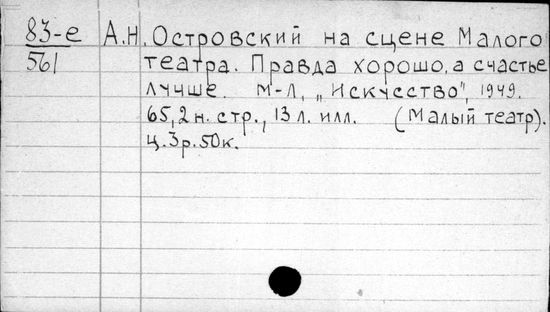 83-е А.Н. Островский на сцене Малого
561 театра. Правда хорошо, а счастье
лучше. М-Л, „Искусство", 1949.
65, 2 н. стр., 13 л. илл. (Малый театр).
Ц. 3 р. 50 к.